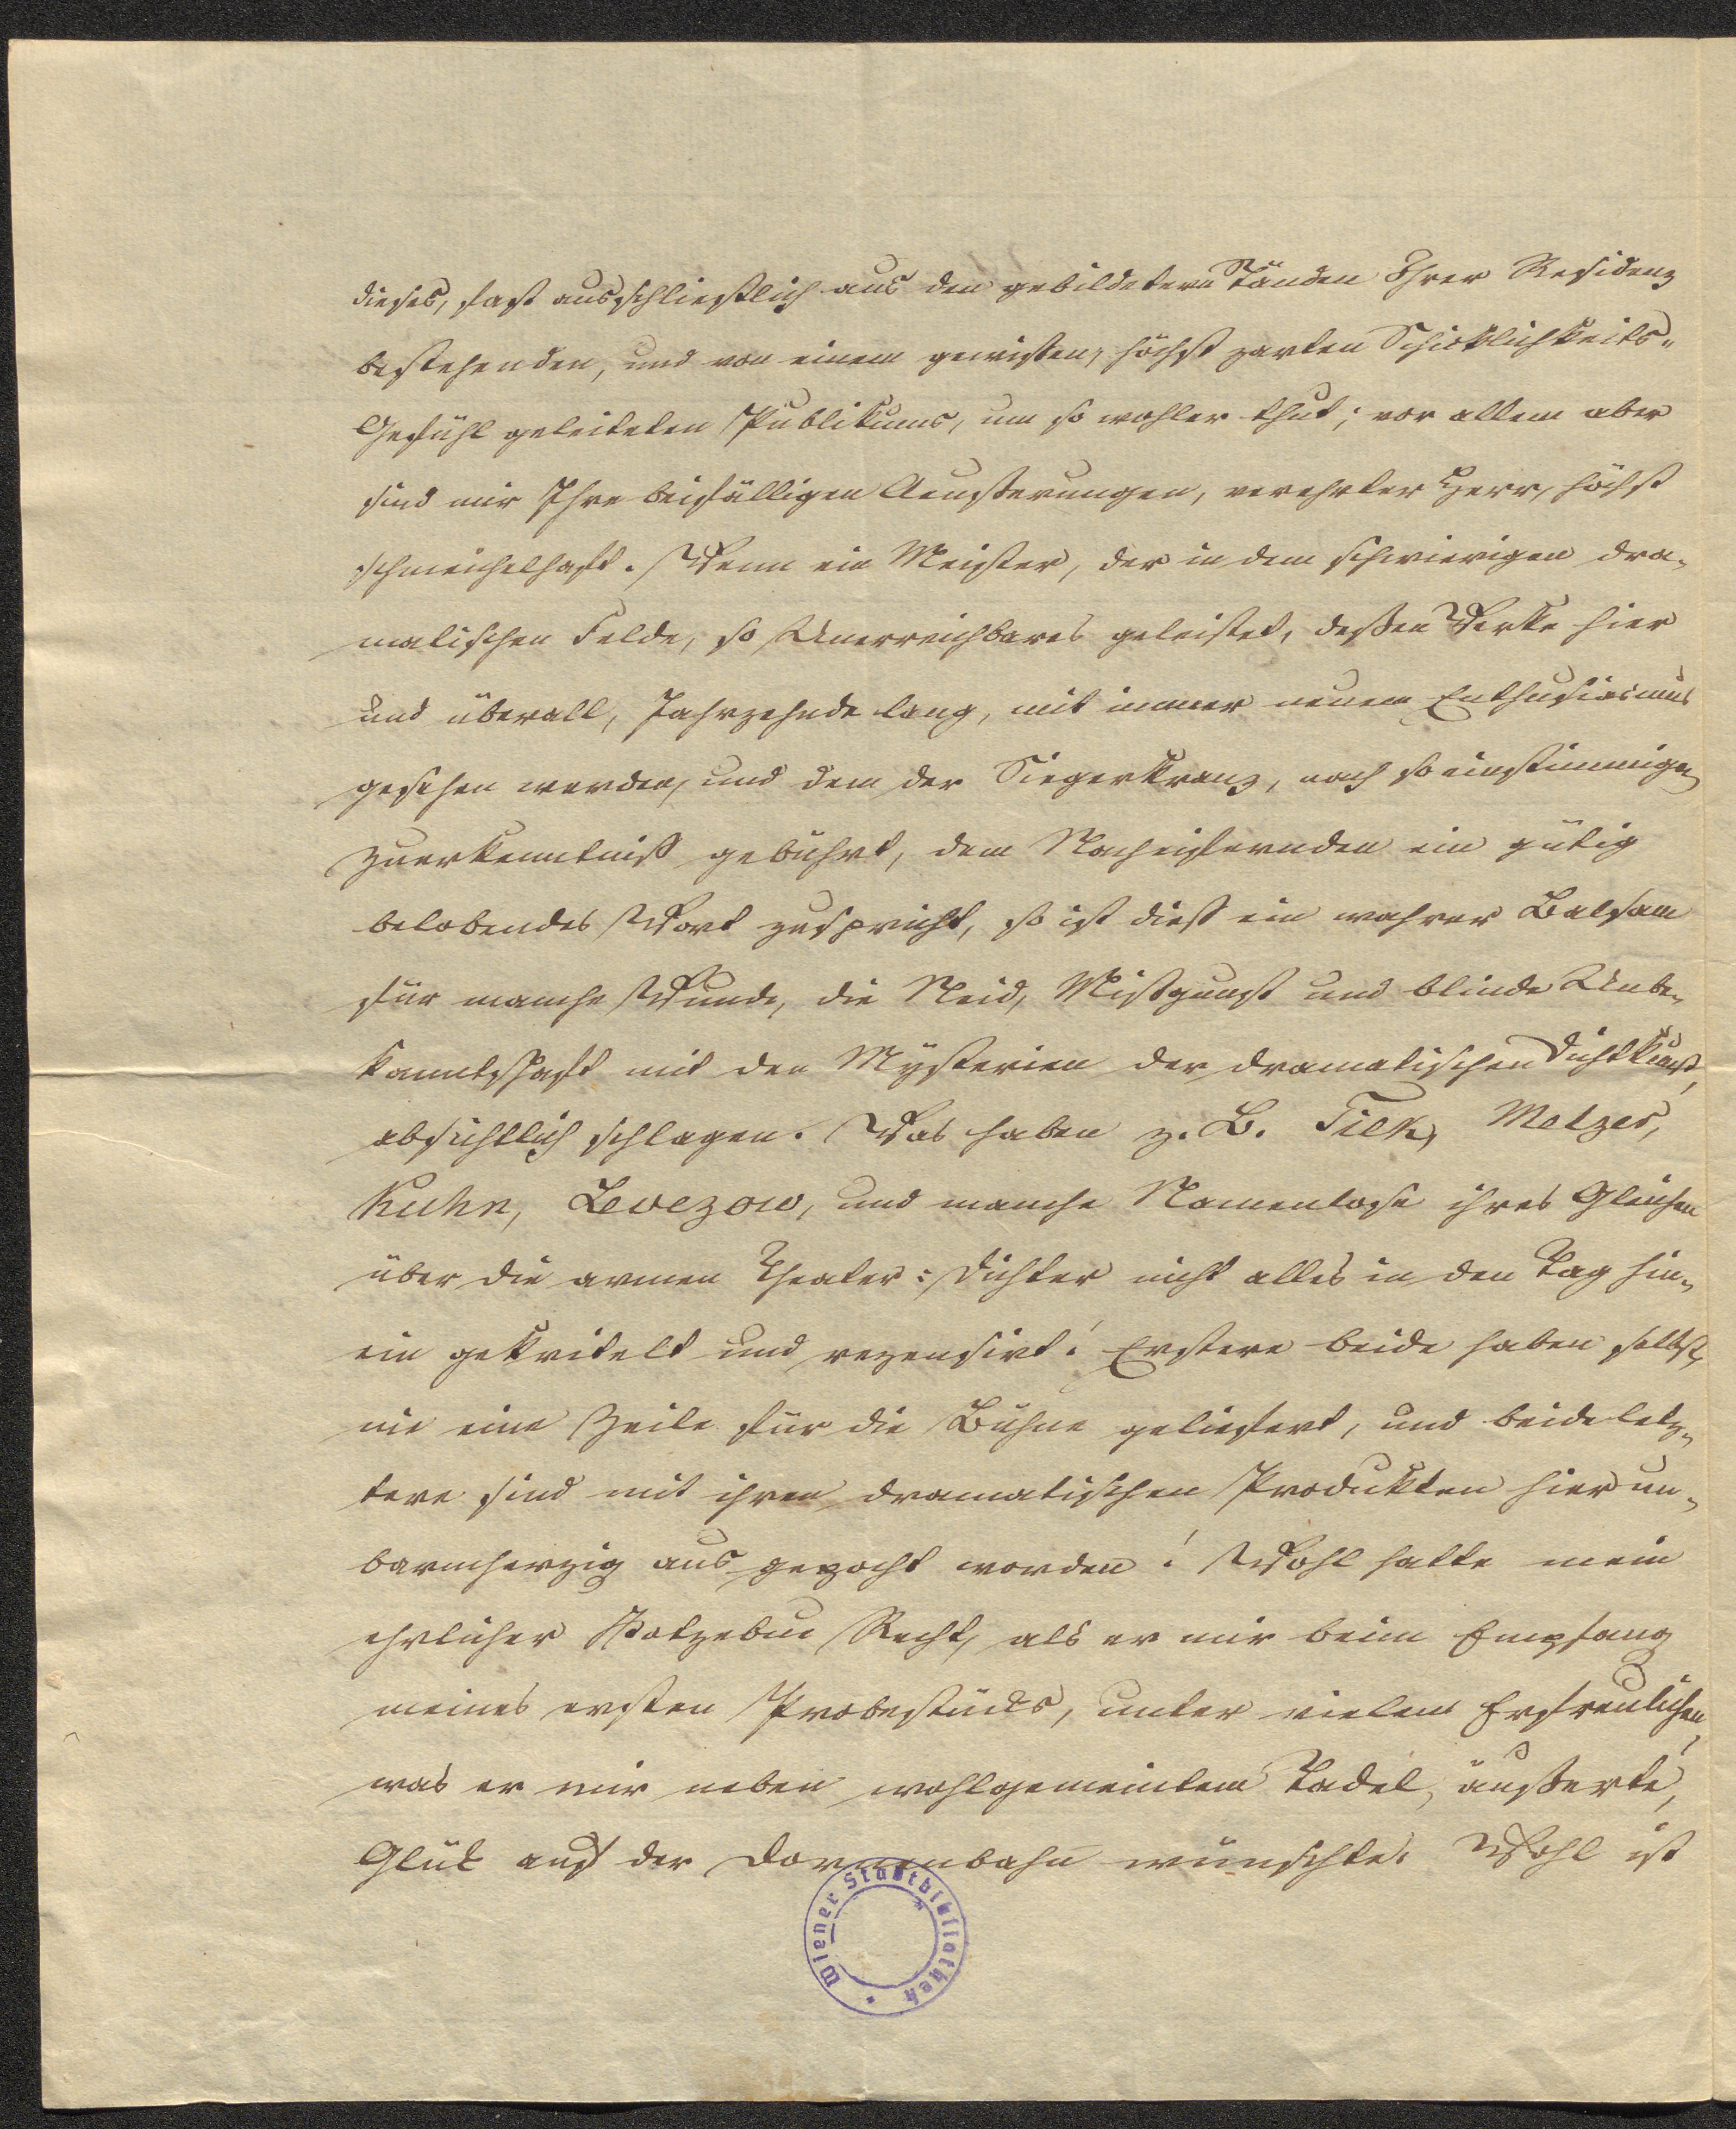 dieses, fast ausschließlich aus den gebildetern Ständen Ihrer Residenz
bestehenden, und von einem gewissen, höchst zarten Schicklichkeits-
Gefühl geleiteten Publikums, um so wohler thut; vor allem aber
sind mir Ihre beifälligen Aeußerungen, verehrter Herr, höchst
schmeichelhaft. Wenn ein Meister, der in dem schwierigen dra-
matischen Felde, so Unerreichbares geleistet, deßen Werke hier
und überall, Jahrzehnde lang, mit immer neuem Enthusiasmus
gesehen werden, und dem der Siegerkranz, nach so einstimmigem
Zuerkenntniß gebührt, dem Nacheifernden ein gütig
belobendes Wort zuspricht, so ist dieß ein wahrer Balsam
für manche Wunde, die Neid, Mißgunst und blinde Unbe-
kanntschaft mit den Mysterien der dramatischen Dichtkunst,
absichtlich schlagen. Was haben z. B. Tiek, Metzer,
Kuhn, Levezow, und manche Namenlose ihres Gleichen
über die armen Theater-Dichter nicht alles in den Tag hin-
ein gekritelt und rezensirt! Erstere beide haben selbst,
nie eine Zeile für die Bühne geliefert, und beide letz-
tere sind mit ihren dramatischen Produkten hier un-
barmherzig ausgepocht worden! Wohl hatte mein
ehrlicher Kotzebue Recht, als er mir beim Empfang
meines ersten Probestücks, unter vielem Erfreulichen,
was er mir neben wohlgemeintem Tadel, äußerte,
Glük auf der Dornenbahn wünschte. Wohl ist
Wiener Stadtbibliothek